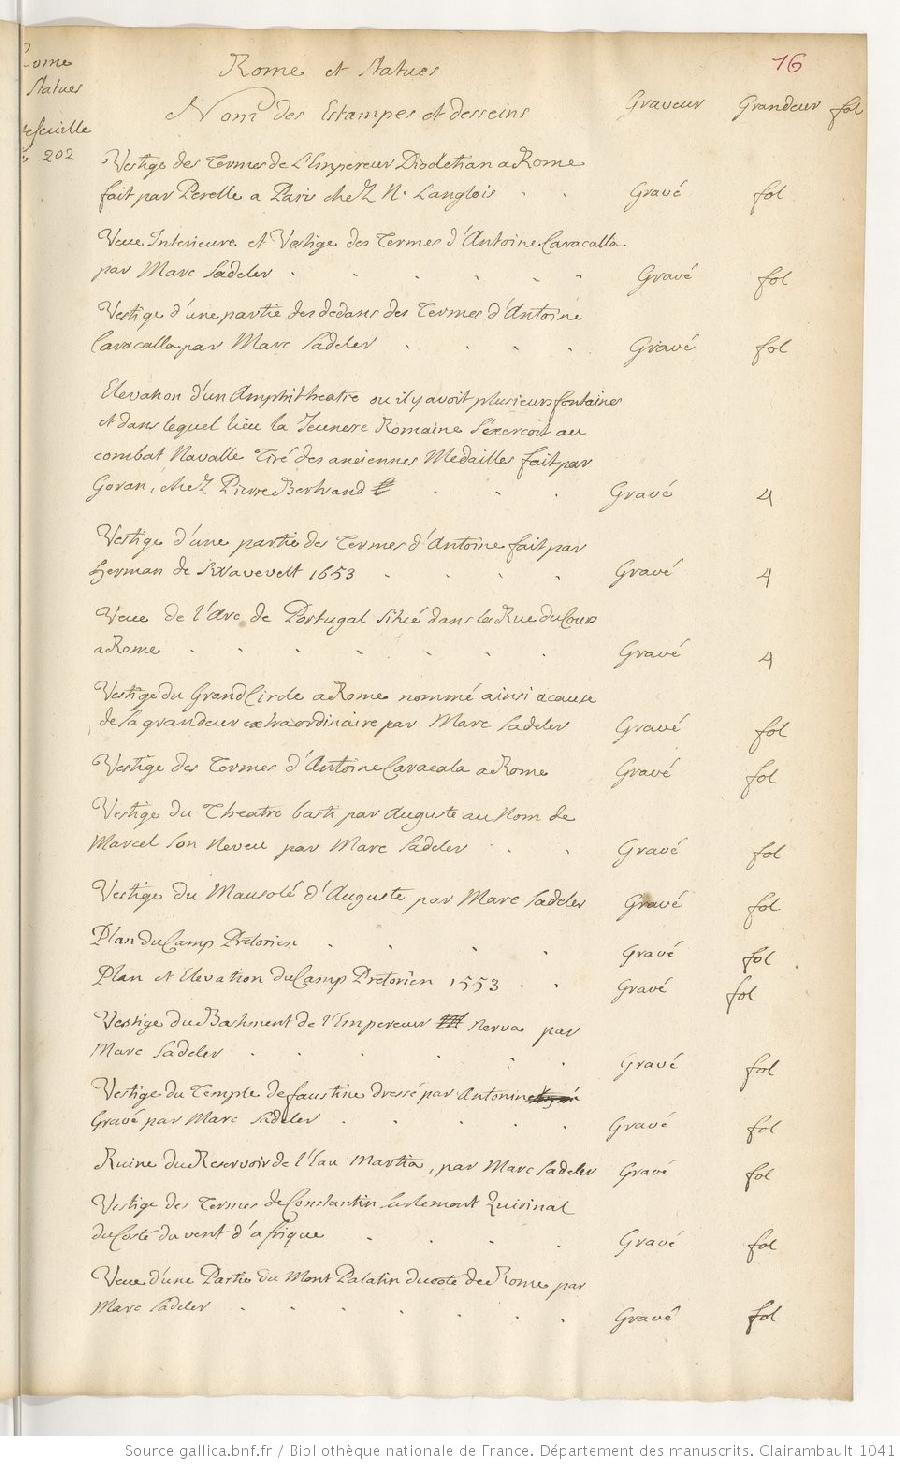 Rome
Statues
202
Rome et Statues
76
Nom des Estampes et desseins Graveur Grandeur fol
Vestige des Termes de L'Empereur Diocletian a Rome
fait par Perelle a Paris chez N. Langlois Gravé fol
Veue Interieure et Vestige des Termes d'Antoine Caracalla
par Marc Sadeler Gravé fol
Vestige d'une partie des dedans des Termes d'Antoine
Caracalla par Marc Sadeler Gravé fol
Elevation d'un Amphitheatre ou il y avoit plusieurs fontaines
et dans lequel lieu la Jeunesse Romaine s'exerçoit au
combat Navalle Tiré des anciennes Medailles fait par
Goran, chez Pierre Bertrand Gravé 4
Vestige d'une partie des Termes d'Antoine fait par
Herman de 1653 Gravé 4
Veue de l'Arc de Portugal Situé dans la Rue du Cours
a Rome Gravé 4
Vestige du Grand Circle a Rome nommé ainsi a cause
de sa grandeur extraordinaire par Marc Sadeler Gravé fol
Vestige des Termes d'Antoine Caracala a Rome Gravé fol
Vestige du Theatre basti par Auguste au Nom de
Marcel Son Neveu par Marc Sadeler Gravé fol
Vestige du Mausolé d'Auguste par Marc Sadeler Gravé fol
Plan du Camp Pretorien Gravé fol
Plan et Elevation du Camp Pretorien 1553 Gravé fol
Vestige du Bastiment de l'Empereur Nerva par
Marc Sadeler Gravé fol
Vestige du Temple de faustine dressé par Antonin
Gravé par Marc Sadeler Gravé fol
Ruine du Reservoir de l'Eau Martia, par Marc Sadeler Gravé fol
Vestige des Termes de Constantin sur le mont Quirinal
du Costé du vent d'afrique Gravé fol
Veue d'une Partie du Mont Palatin du coté de Rome par
Marc Sadeler Gravé fol
Source gallica.bnf.fr / Bibliothèque nationale de France. Département des manuscrits. Clairambault 1041